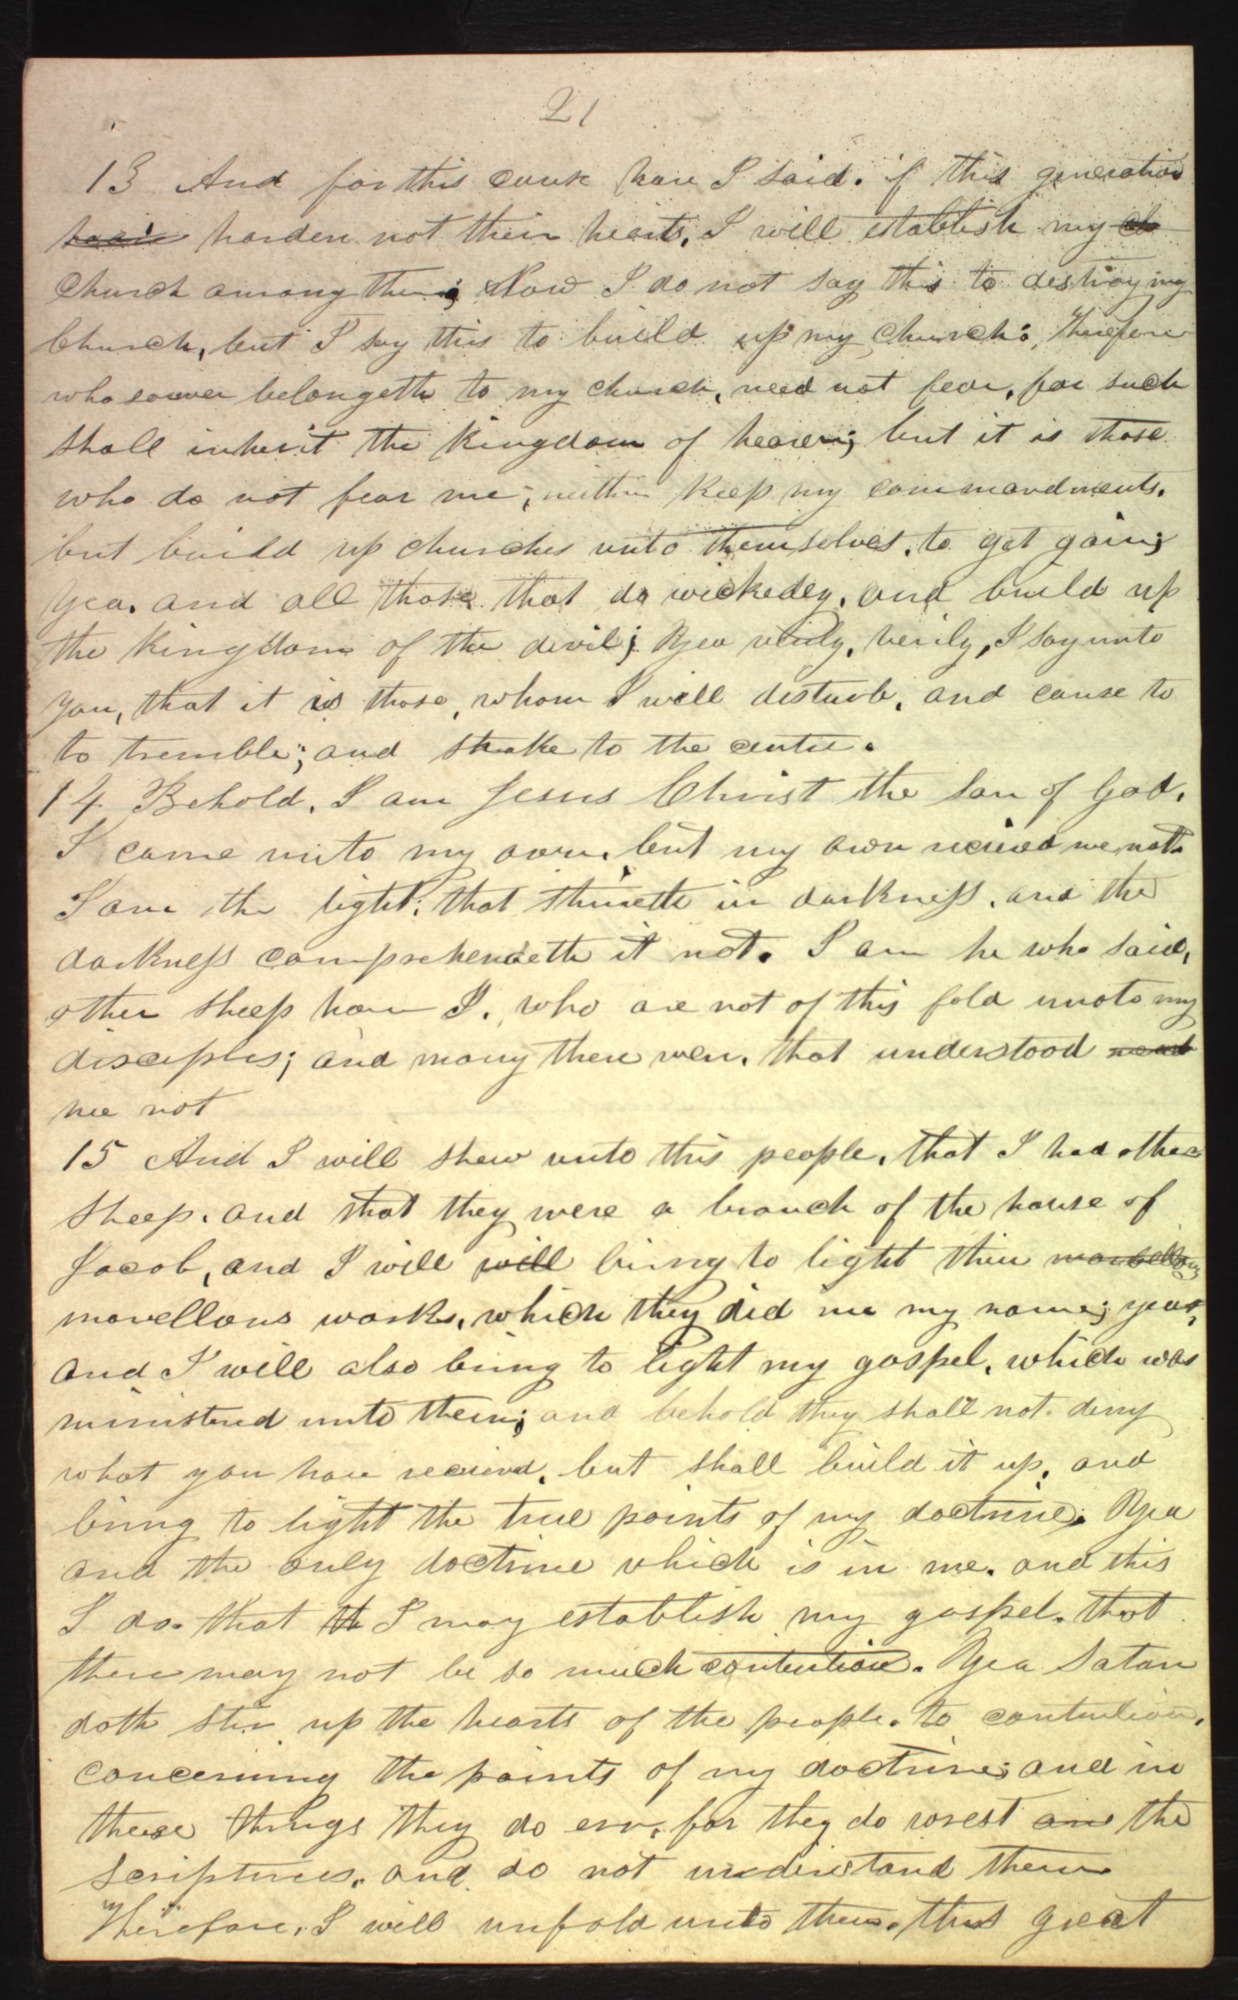 21
13 And for this cause have I said. if this generation
harden not their hearts, I will establish my ch
church among them; Now I do not say this to destroy my
Church, but I say this to build up my church: Therefore
whosoever belongeth to my church, need not fear, for such
shall inherit the Kingdom of heaven; but it is those
who do not fear me; neither keep my commandments.
but build up churches unto themselves, to get gain;
yea. and all those that do wickedly, and build up
the Kingdom of the devil; Yea verily, verily, I say unto
you, that it is those, whom I will disturb, and cause to
to tremble; and shake to the centre.
14 Behold, I am Jesus Christ the Son of God.
I came unto my own, but my own recieved me not
I am the light; that shineth in darkness, and the
darkness comprehendeth it not. I am he who said,
other sheep have I, who are not of this fold unoto my
disciples; and many there were, that understood
me not
15 And I will shew unto this people, that I had other
sheep, and that they were a branch of the house of
Jacob, and I will will bring to light their marvellous
marvellous works, which they did in my name; yea,
and I will also bring to light my gospel, which was
ministered unto them; and behold they shall not deny
what you have recieved, but shall build it up, and
bring to light the true points of my doctrine. Yea
and the only doctrine which is in me. and this
I do. that th I may establish my gospel. that
there may not be so much contention. Yea Satan
doth stir up the hearts of the people. to contention,
concerning the points of my doctrine; and in
these things they do err, for they do wrest and the
scriptures, and do not understand them
Therefore, I will unfold unto them, this great